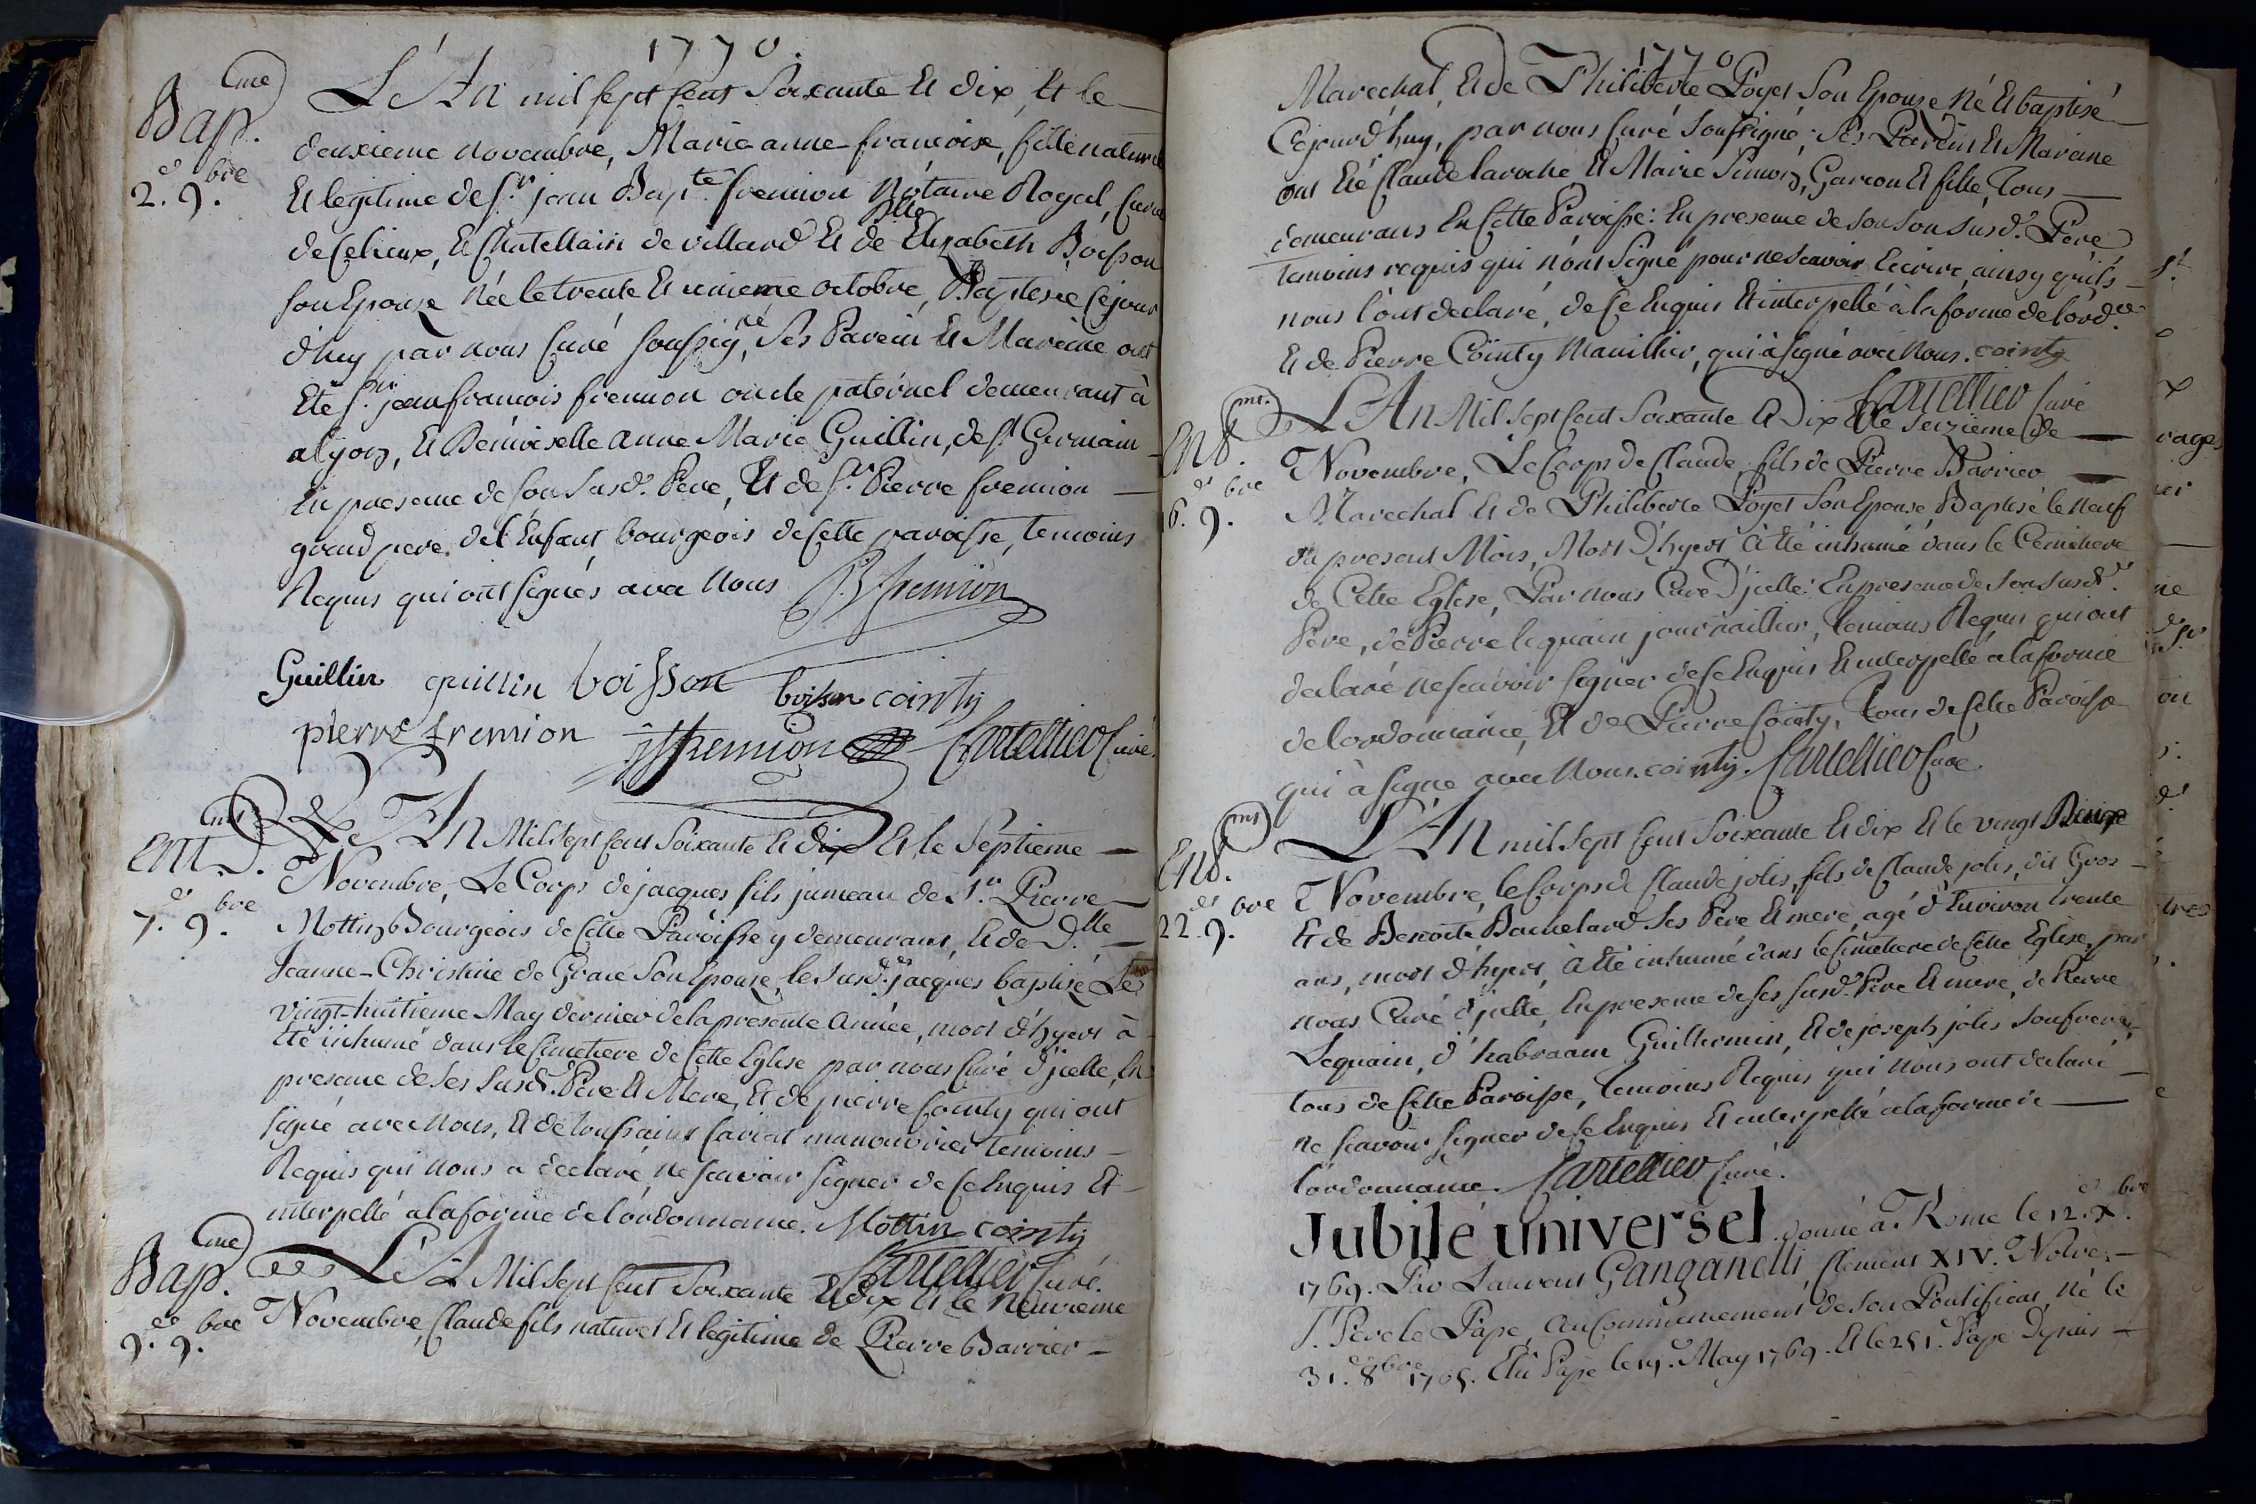 1770.
Bap.me
L'An mil sept cent Soixante Et dix, Et le
2.e 9.bre
deuxieme novembre, Marie anne francoise, fille naturelle
Et legitime de S.r jean Bap.te fremion Notaire Royal, Curial
de Celieux, Et Chatellain de villard Et de D.lle Elizabeth Boisson
son Epouse Née le trente Et unieme octobre, Baptisée Cejour
d'huy par nous Curé soussigné, Ses Parein Et Mareine ont
Eté S.r jean francois fremion oncle paternel demeurant à
alyon, Et Demoiselle anne Marie Guillin, de S.t Germain
En presence de son Susd. Pere, Et de S.r Pierre fremion
grand pere de l'Enfant bourgeois de Cette paroisse, temoins
Requis qui ont signés avec Nous fremion
Guillin guillin boisson boisson cointy
pierre fremion fremion Cartellier Curé.
Ent.mt
L'An Mil sept cent Soixante Et dix Et le Septieme
7.e 9.bre
Novembre, Le Corps de jacques fils jumeau de S.r Pierre
Mottin Bourgeois de Cette Paroisse y demeurant, Et de D.lle
Jeanne-Christine de Grace Son Epouse, le Susd. jacques baptisé Le
vingt-huitieme May dernier de la presente Année, mort d'hyert à
Eté inhumé dans le Cimetiere de Cette Eglise par nous Curé d'jcelle, En
presence de Ses Susd. Pere Et Mere, Et de pierre Cointy qui ont
signé avec Nous, Et de toussaint manouvrier temoins
Requis qui nous a declaré ne scavoir signer de Ce Enquis Et
interpellé a la forme de l'ordonnance. Mottin cointy
Cartellier Curé.
Bap.me
L'An Mil sept cent Soixante Et dix Et le Neuvieme
9.e 9.bre
Novembre, Claude fils naturel Et legitime de Pierre Barrier
1770
Marechal, Et de Philiberte Poyet Son Epouse Né Et baptisé
Cejourd'huy, par nous Curé Soussigné; Ses Parein Et Mareine
ont Eté Claude laroche Et Marie Simon, Garcon Et fille, Tous
demeurans En Cette Paroisse: En presence de son son susd. Pere
temoins requis qui n'ont Signé pour ne Scavoir Ecrire, ainsy qu'ils
nous l'ont declaré, de Ce Enquis Et interpellé à la forme de l'ord.ce
Et de Pierre Cointy Manillier, qui à signé avec Nous. cointy
Cartellier Curé
Ent.mt
L'An Mil Sept Cent Soixante Et Dix Et le Seizieme de
16.e 9.bre
Novembre, Le Corps de Claude, fils de Pierre Barrier
Marechal Et de Philiberte Poyet Son Epouse, Baptisé le Neuf
du present Mois, Mort D'hyert à Eté inhumé dans le Cemitiere
de Cette Eglise, Par Nous Curé D'jcelle: En presence de Son Susd.
Pere, de Pierre lequain journaillier, temoins Requis qui ont
declaré ne scavoir signer de Ce Enquis Et interpellé a la forme
de l'ordonnance, Et de Pierre Cointy, Tous de Cette Paroisse
qui à signe avec Nous. cointy. Cartellier Curé.
Ent.mt
L'An mil sept cent Soixante Et dix Et le vingt Deux
22.e 9.bre
Novembre, le Corps de Claude jolis, fils de Claude jolis, dit Gros
Et de Benoite Bachelard Ses Pere Et mere, agé d'Environ trente
ans, mort d'hyert, à Eté inhumé dans le Cimetiere de Cette Eglise, par
nous Curé d'jcelle, En presence de ses susd. Pere Et mere, de Pierre
Lequain, d'habraam Guillermin, Et de joseph jolis son frere
tous de Cette Paroisse, temoins Requis qui Nous ont declaré
ne scavoir signer de Ce Enquis Et interpellé a la forme de
l'ordonnance. Cartellier Curé.
Jubilé universel donné à Rome le 12.e X.bre
1769. Par Laurent Ganganelli, Clement XIV. Notre
S.t Pere le Pape, au Commencement de son Pontificat, né le
31. 8.bre 1705. Elû Pape le 19. May 1769. Et le 251. Pape Depuis